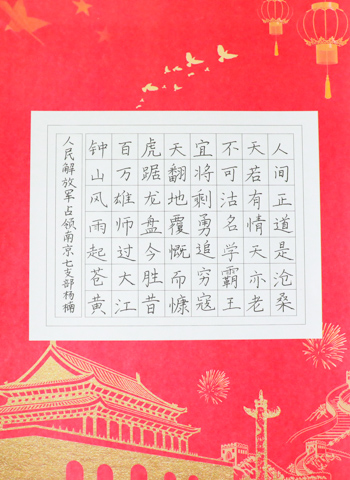 人民解放军占领南京七支部杨楠
钟山风雨起苍黄
百万雄师过大江
虎踞龙盘今胜昔
天翻地覆慨而慷
宜将剩勇追穷寇
不可沽名学霸王
天若有情天亦老
人间正道是沧桑